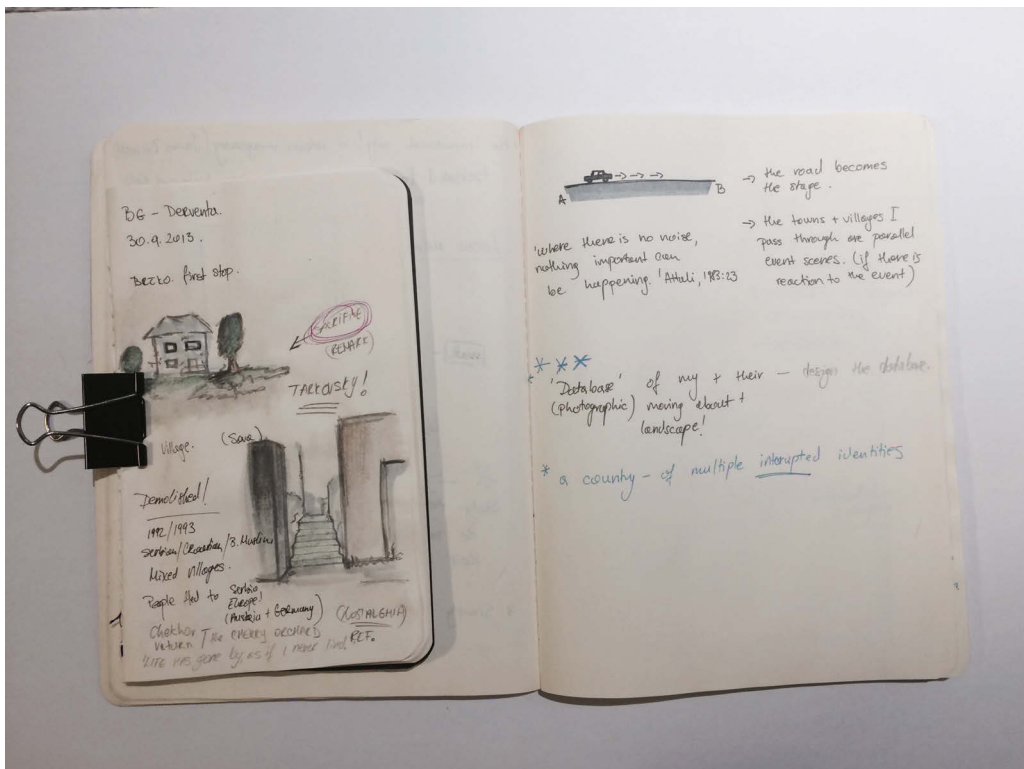 BG - Derventa.
30.9.2013.
Brcko. first stop.
(SACRIFICE)
(REMARK)
TARKOVSKY!
Village. (Sava)
Demolished!
1992/1993
Serbian/Croatian/B. Muslim
Mixed villages.
People fled to Serbia
Europe!
(Austria + Germany)
(NOSTALGHIA)
REF.
Chekhov
return / the CHERRY ORCHARD
'LIFE has gone by, as if I never lived
A
B
→ the road becomes
the stage.
'where there is no noise,
nothing important can
be happening.' Attali, 1983:23
→ the towns + villages I
pass through are parallel
event scenes. (if there is
reaction to the event)
'Database' of my + their — design the database.
(photographic) moving about +
landscape!
* a country - of multiple interupted identities